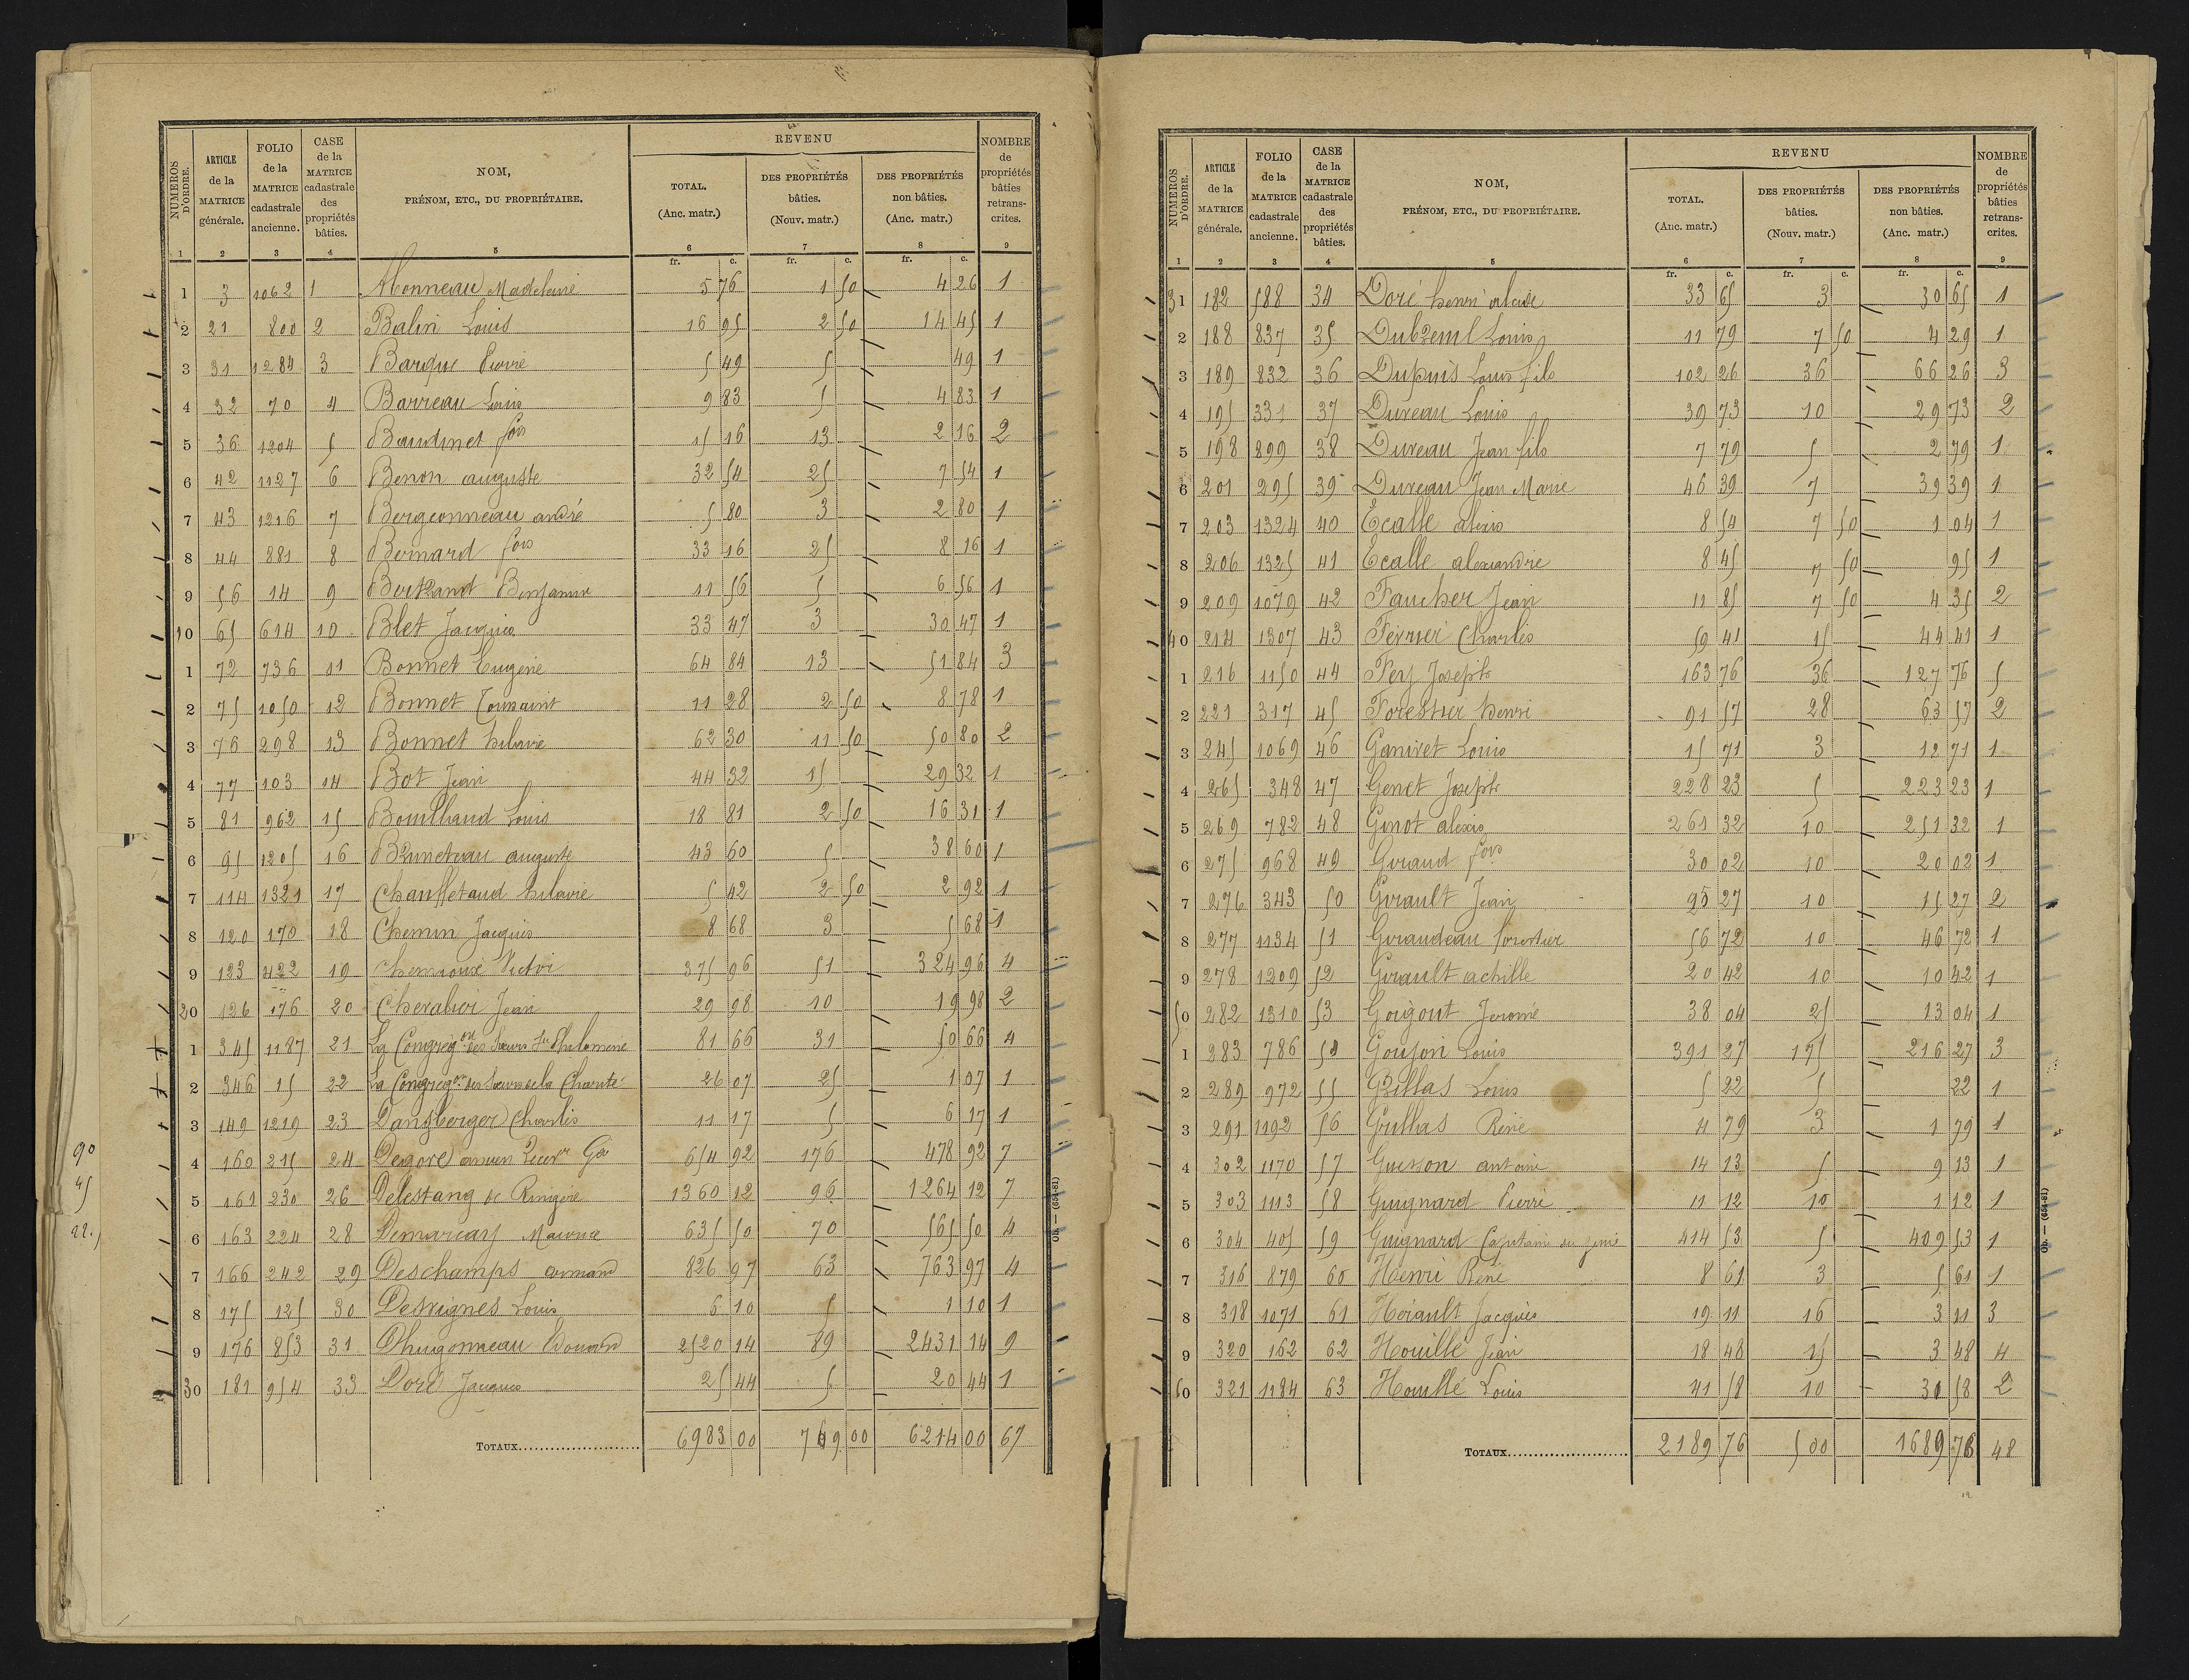 NUMÉROS D'ORDRE. | ARTICLE de la MATRICE générale. | FOLIO de la MATRICE cadastrale ancienne. | CASE de la MATRICE cadastrale des propriétés bâties. | NOM, PRÉNOM, ETC., DU PROPRIÉTAIRE. | REVENU TOTAL. (Anc. matr.) | DES PROPRIÉTÉS bâties. (Nouv. matr.) | DES PROPRIÉTÉS non bâties. (Anc. matr.) | NOMBRE de propriétés bâties retranscrites.
1 | 2 | 3 | 4 | 5 | 6 | 7 | 8 | 9
fr. c. | fr. c. | fr. c.
1 | 3 | 1062 | 1 | Monneau Madeleine | 5 76 | 1 50 | 4 26 | 1
2 | 21 | 800 | 2 | Balin Louis | 16 95 | 2 50 | 14 45 | 1
3 | 31 | 1284 | 3 | Barque Pierre | 5 49 | 5 | 49 | 1
4 | 32 | 70 | 4 | Barreau Louis | 9 83 | 5 | 4 83 | 1
5 | 36 | 1204 | 5 | Baudinet fois | 15 16 | 13 | 2 16 | 2
6 | 42 | 1127 | 6 | Benon auguste | 32 54 | 25 | 7 54 | 1
7 | 43 | 1216 | 7 | Bergeonneau andré | 5 80 | 3 | 2 80 | 1
8 | 44 | 881 | 8 | Bernard fois | 33 16 | 25 | 8 16 | 1
9 | 56 | 14 | 9 | Bertrand Benjamin | 11 56 | 5 | 6 56 | 1
10 | 65 | 614 | 10 | Blet Jacques | 33 47 | 3 | 30 47 | 1
1 | 72 | 736 | 11 | Bonnet Eugène | 64 84 | 13 | 51 84 | 3
2 | 75 | 1050 | 12 | Bonnet Toussaint | 11 28 | 2 50 | 8 78 | 1
3 | 76 | 298 | 13 | Bonnet hilaire | 62 30 | 11 50 | 50 80 | 2
4 | 77 | 103 | 14 | Bot Jean | 44 32 | 15 | 29 32 | 1
5 | 81 | 962 | 15 | Bouilhaud Louis | 18 81 | 2 50 | 16 31 | 1
6 | 95 | 1205 | 16 | Bruneteau auguste | 43 60 | 5 | 38 60 | 1
7 | 114 | 1321 | 17 | Chauffetaud hilaire | 5 42 | 2 50 | 2 92 | 1
8 | 120 | 170 | 18 | Chemin Jacques | 8 68 | 3 | 5 68 | 1
9 | 123 | 422 | 19 | Chemioux Victor | 375 96 | 51 | 324 96 | 4
20 | 126 | 176 | 20 | Chevalier Jean | 29 98 | 10 | 19 98 | 2
1 | 345 | 1187 | 21 | La Congrégon des Sœurs Ste Philomène | 81 66 | 31 | 50 66 | 4
2 | 346 | 15 | 22 | La Congregon des Sœurs de la Charité | 26 07 | 25 | 1 07 | 1
3 | 149 | 1219 | 23 | Dansberger Charles | 11 17 | 5 | 6 17 | 1
4 | 160 | 215 | 24 | Degore ancien Recer Gal | 654 92 | 176 | 478 92 | 7
5 | 161 | 230 | 26 | Delestang de Ringère | 1360 12 | 96 | 1264 12 | 7
6 | 163 | 224 | 28 | Demarçay Maurice | 635 50 | 70 | 565 50 | 4
7 | 166 | 242 | 29 | Deschamps armand | 826 97 | 63 | 763 97 | 4
8 | 175 | 125 | 30 | Desvignes Louis | 6 10 | 5 | 1 10 | 1
9 | 176 | 853 | 31 | Dhugonneau Edouard | 2520 14 | 89 | 2431 14 | 9
30 | 181 | 954 | 33 | Doré Jacques | 25 44 | 5 | 20 44 | 1
TOTAUX | 6983 00 | 769 00 | 6214 00 | 67
90
45
22.5
Ob. — (654-81)
NUMÉROS D'ORDRE. | ARTICLE de la MATRICE générale. | FOLIO de la MATRICE cadastrale ancienne. | CASE de la MATRICE cadastrale des propriétés bâties. | NOM, PRÉNOM, ETC., DU PROPRIÉTAIRE. | REVENU TOTAL. (Anc. matr.) | DES PROPRIÉTÉS bâties. (Nouv. matr.) | DES PROPRIÉTÉS non bâties. (Anc. matr.) | NOMBRE de propriétés bâties retranscrites.
1 | 2 | 3 | 4 | 5 | 6 | 7 | 8 | 9
fr. c. | fr. c. | fr. c.
31 | 182 | 588 | 34 | Doré henri alcide | 33 65 | 3 | 30 65 | 1
2 | 188 | 837 | 35 | Louis | 11 79 | 7 50 | 4 29 | 1
3 | 189 | 832 | 36 | Dupuis Louis fils | 102 26 | 36 | 66 26 | 3
4 | 195 | 331 | 37 | Dureau Louis | 39 73 | 10 | 29 73 | 2
5 | 198 | 899 | 38 | Dureau Jean fils | 7 79 | 5 | 2 79 | 1
6 | 201 | 295 | 39 | Dureau Jean Marie | 46 39 | 7 | 39 39 | 1
7 | 203 | 1324 | 40 | Ecalle alexis | 8 54 | 7 50 | 1 04 | 1
8 | 206 | 1325 | 41 | Ecalle alexandre | 8 45 | 7 50 | 95 | 1
9 | 209 | 1079 | 42 | Faucher Jean | 11 85 | 7 50 | 4 35 | 2
40 | 214 | 1307 | 43 | Ferrier Charles | 59 41 | 15 | 44 41 | 1
1 | 216 | 1150 | 44 | Fey Joseph | 163 76 | 36 | 127 76 | 5
2 | 221 | 317 | 45 | Forestier henri | 91 57 | 28 | 63 57 | 2
3 | 245 | 1069 | 46 | Ganivet Louis | 15 71 | 3 | 12 71 | 1
4 | 265 | 348 | 47 | Genet Joseph | 228 23 | 5 | 223 23 | 1
5 | 269 | 782 | 48 | Ginot alexis | 261 32 | 10 | 251 32 | 1
6 | 275 | 968 | 49 | Giraud fois | 30 02 | 10 | 20 02 | 1
7 | 276 | 343 | 50 | Girault Jean | 25 27 | 10 | 15 27 | 2
8 | 277 | 1134 | 51 | Giraudeau forestier | 56 72 | 10 | 46 72 | 1
9 | 278 | 1209 | 52 | Girault achille | 20 42 | 10 | 10 42 | 1
50 | 282 | 1310 | 53 | Goigout Jerome | 38 04 | 25 | 13 04 | 1
1 | 283 | 786 | 54 | Goujon Louis | 391 27 | 175 | 216 27 | 3
2 | 289 | 972 | 55 | Grillas Louis | 5 22 | 5 | 22 | 1
3 | 291 | 1192 | 56 | Grillas René | 4 79 | 3 | 1 79 | 1
4 | 302 | 1170 | 57 | Guesson antoine | 14 13 | 5 | 9 13 | 1
5 | 303 | 1113 | 58 | Guignard Pierre | 11 12 | 10 | 1 12 | 1
6 | 304 | 405 | 59 | Guignard Capitaine du génie | 414 53 | 5 | 409 53 | 1
7 | 316 | 879 | 60 | Henri René | 8 61 | 3 | 5 61 | 1
8 | 318 | 1071 | 61 | Hérault Jacques | 19 11 | 16 | 3 11 | 3
9 | 320 | 162 | 62 | Houillé Jean | 18 48 | 15 | 3 48 | 4
60 | 321 | 1184 | 63 | Houillé Louis | 41 58 | 10 | 31 58 | 2
TOTAUX | 2189 76 | 500 | 1689 76 | 48
Ob. — (654-81)